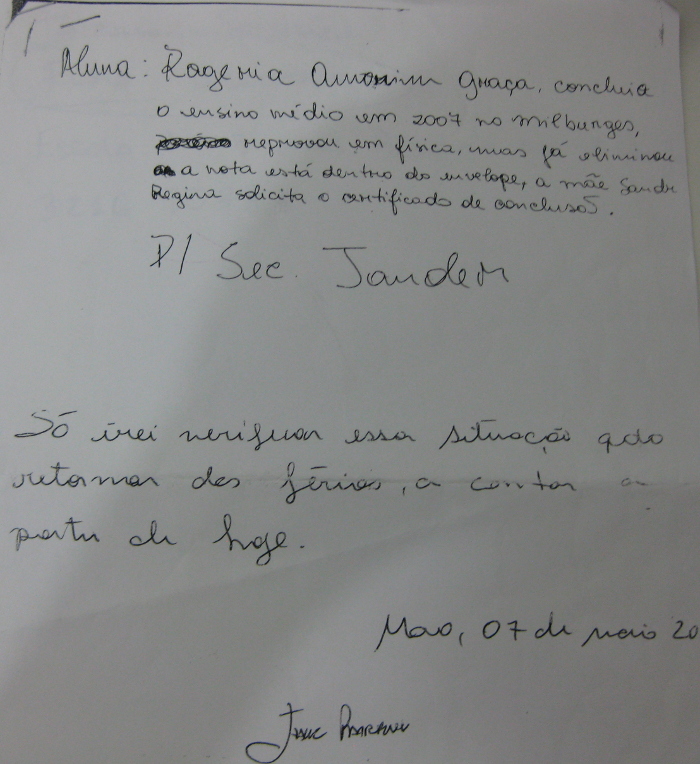 Aluna: Rageria Amorim Graça, concluiu
o ensino médio em 2007 no milburges,
reprovou em física, mas já eliminou
a nota está dentro do envelope, a mãe Sandr
Regina solicita o certificado de conclusõ.
P/ Sec. Jander
Só irei verificar essa situação qdo
retornar das férias, a contar a
partir de hoje.
Mao, 07 de maio 20